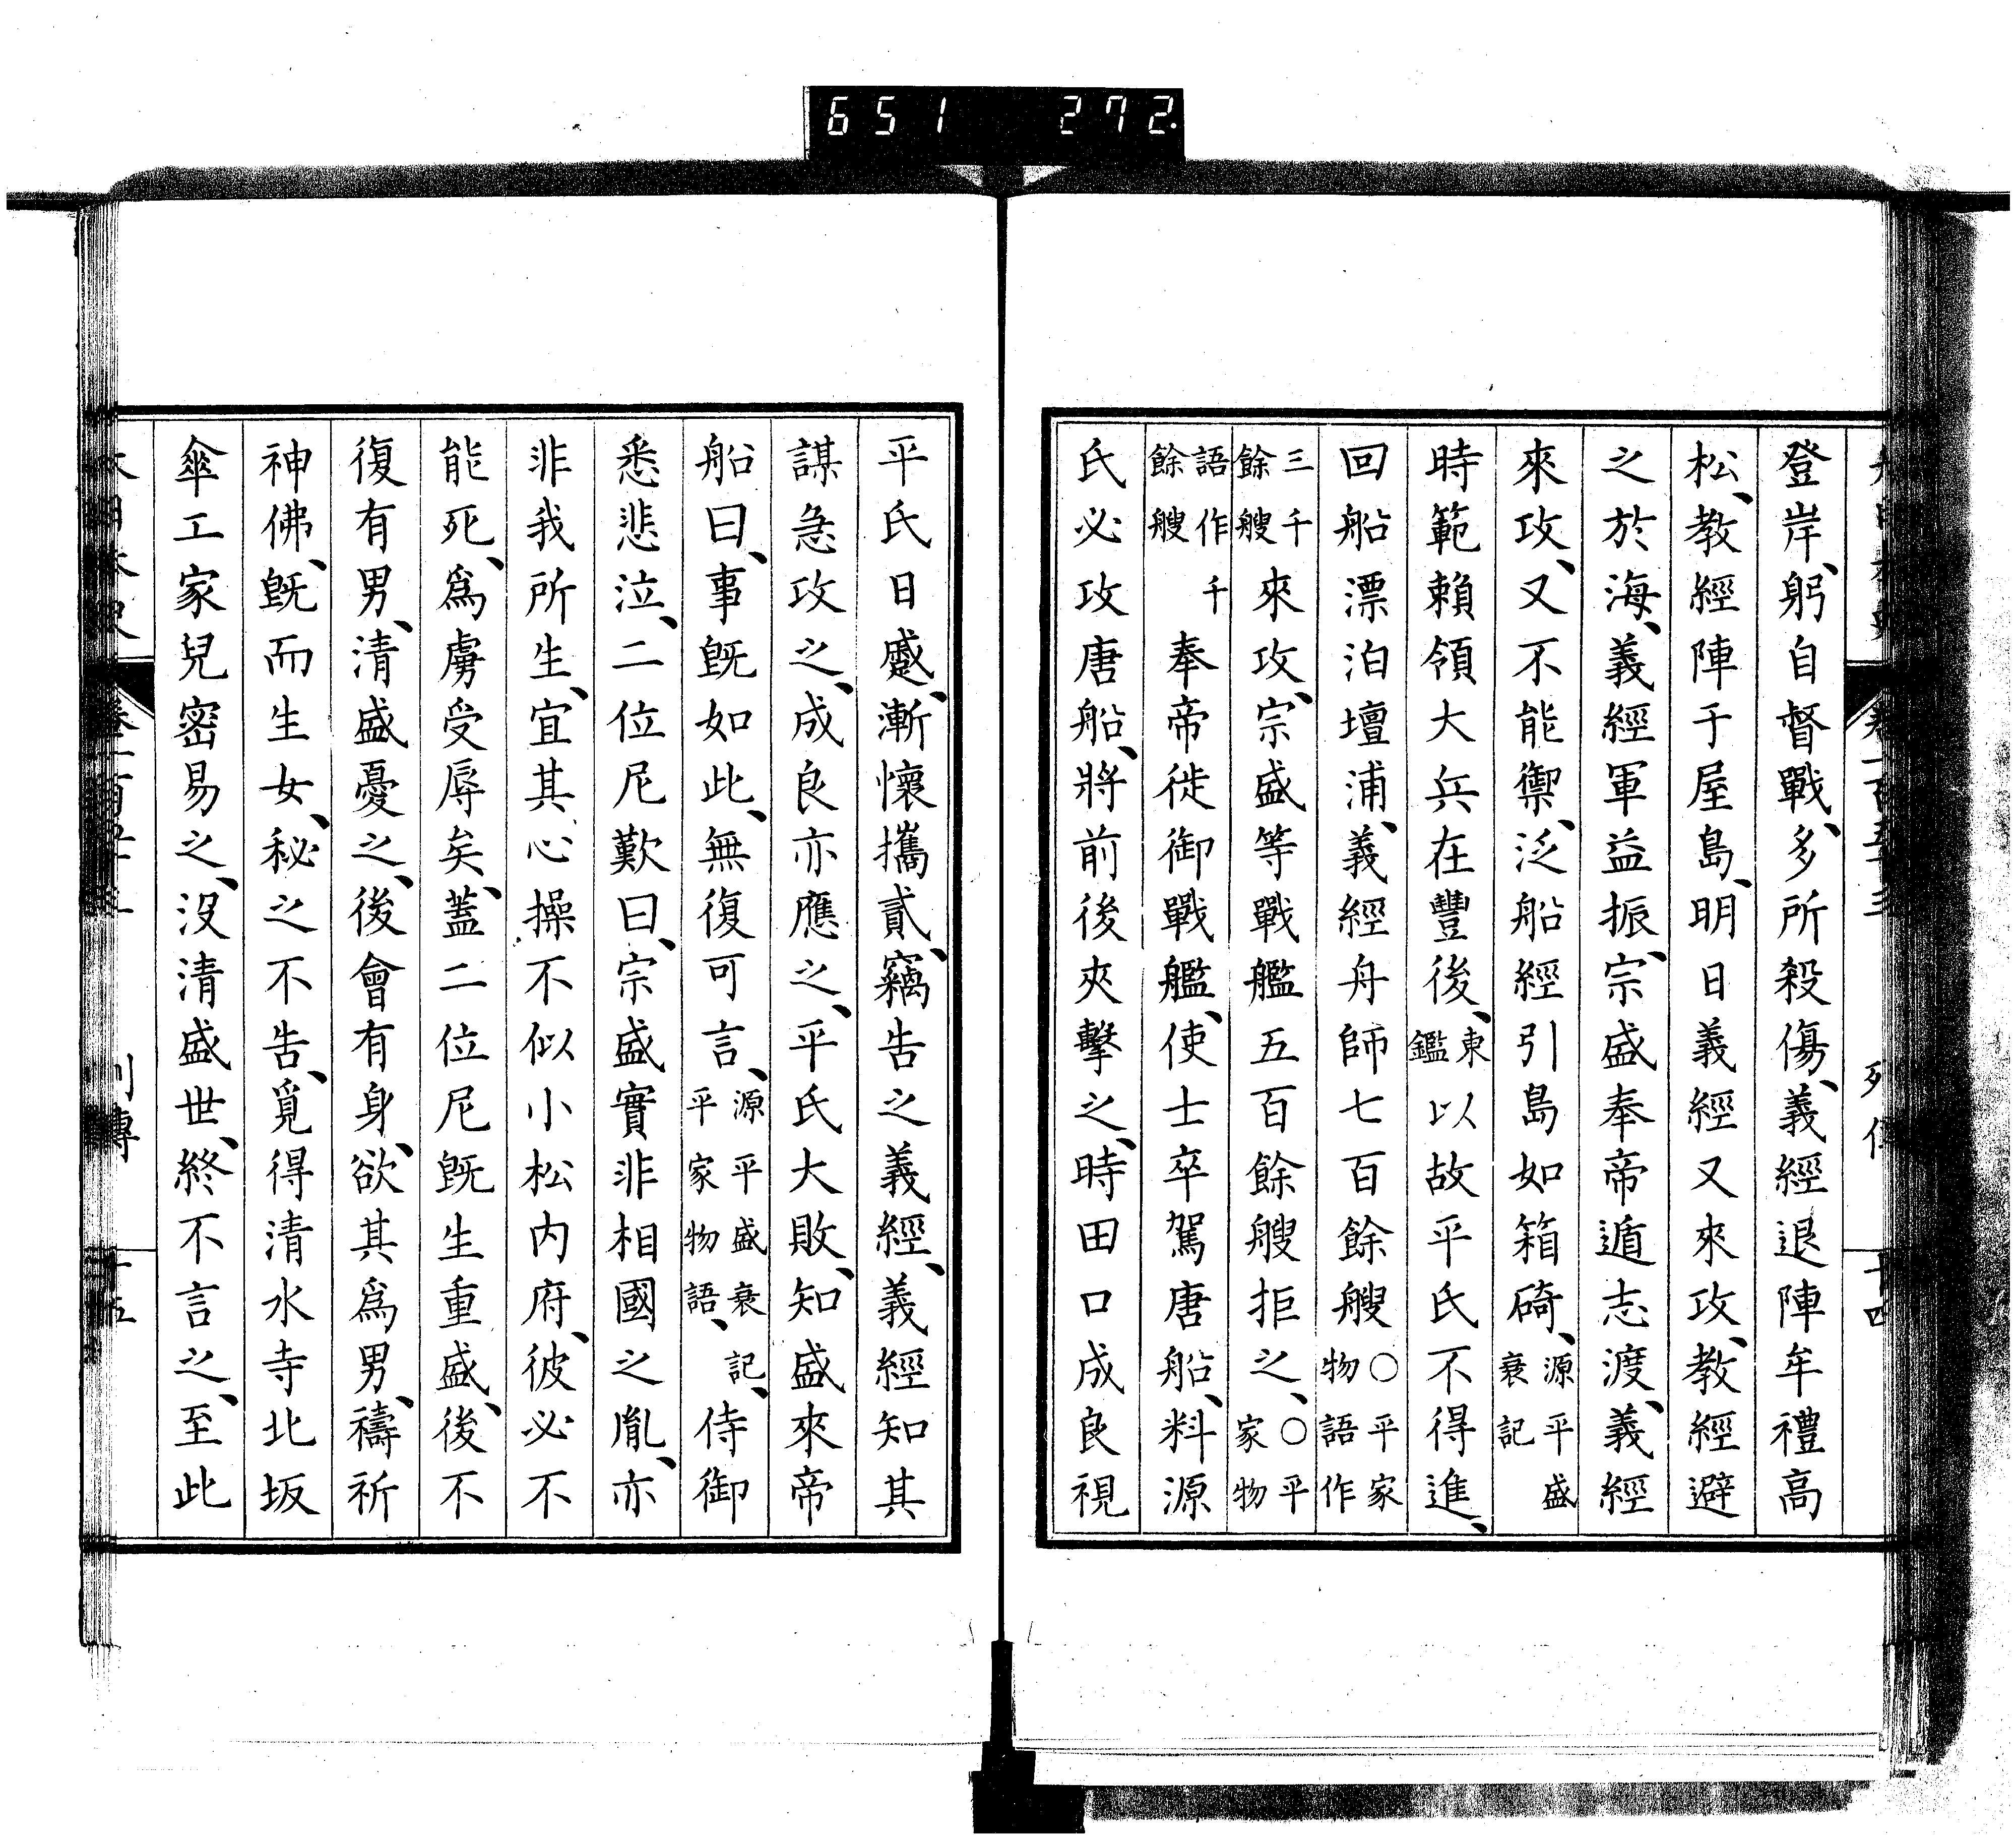 651 272
登岸、躬自督戰、多所殺傷、義經退陣牟禮高
松、教經陣于屋島、明日義經又來攻、教經避
之於海、義經軍益振、宗盛奉帝遁志渡、義經
來攻、又不能禦、泛船經引島如箱碕、源平盛衰記
時範賴領大兵在豐後、東鑑以故平氏不得進、
回船漂泊壇浦、義經舟師七百餘艘○平家物語作
三千餘艘來攻、宗盛等戰艦五百餘艘拒之、○平家物
語作千餘艘奉帝徙御戰艦、使士卒駕唐船、料源
氏必攻唐船、將前後夾擊之、時田口成良視
平氏日蹙、漸懷攜貳、竊告之義經、義經知其
謀急攻之、成良亦應之、平氏大敗、知盛來帝
船曰、事既如此、無復可言、源平盛衰記、平家物語、侍御
悉悲泣、二位尼歎曰、宗盛實非相國之胤、亦
非我所生、宜其心操不似小松内府、彼必不
能死、爲虜受辱矣、蓋二位尼既生重盛、後不
復有男、清盛憂之、後會有身、欲其爲男、禱祈
神佛、既而生女、秘之不告、覓得清水寺北坂
傘工家兒密易之、沒清盛世、終不言之、至此
列傳